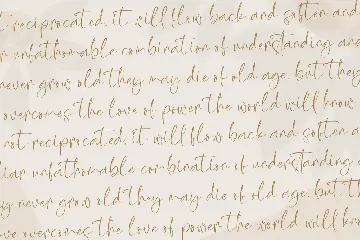 reciprocated. it will flow back and soften and
unfathomable combination of understanding and
never grow old they may die of old age. but they
overcomes the love of power the world will know
not reciprocated. it will flow back and soften a
liar unfathomable combination of understanding
never grow old they may die of old age. but
overcomes the love of power the world will kn